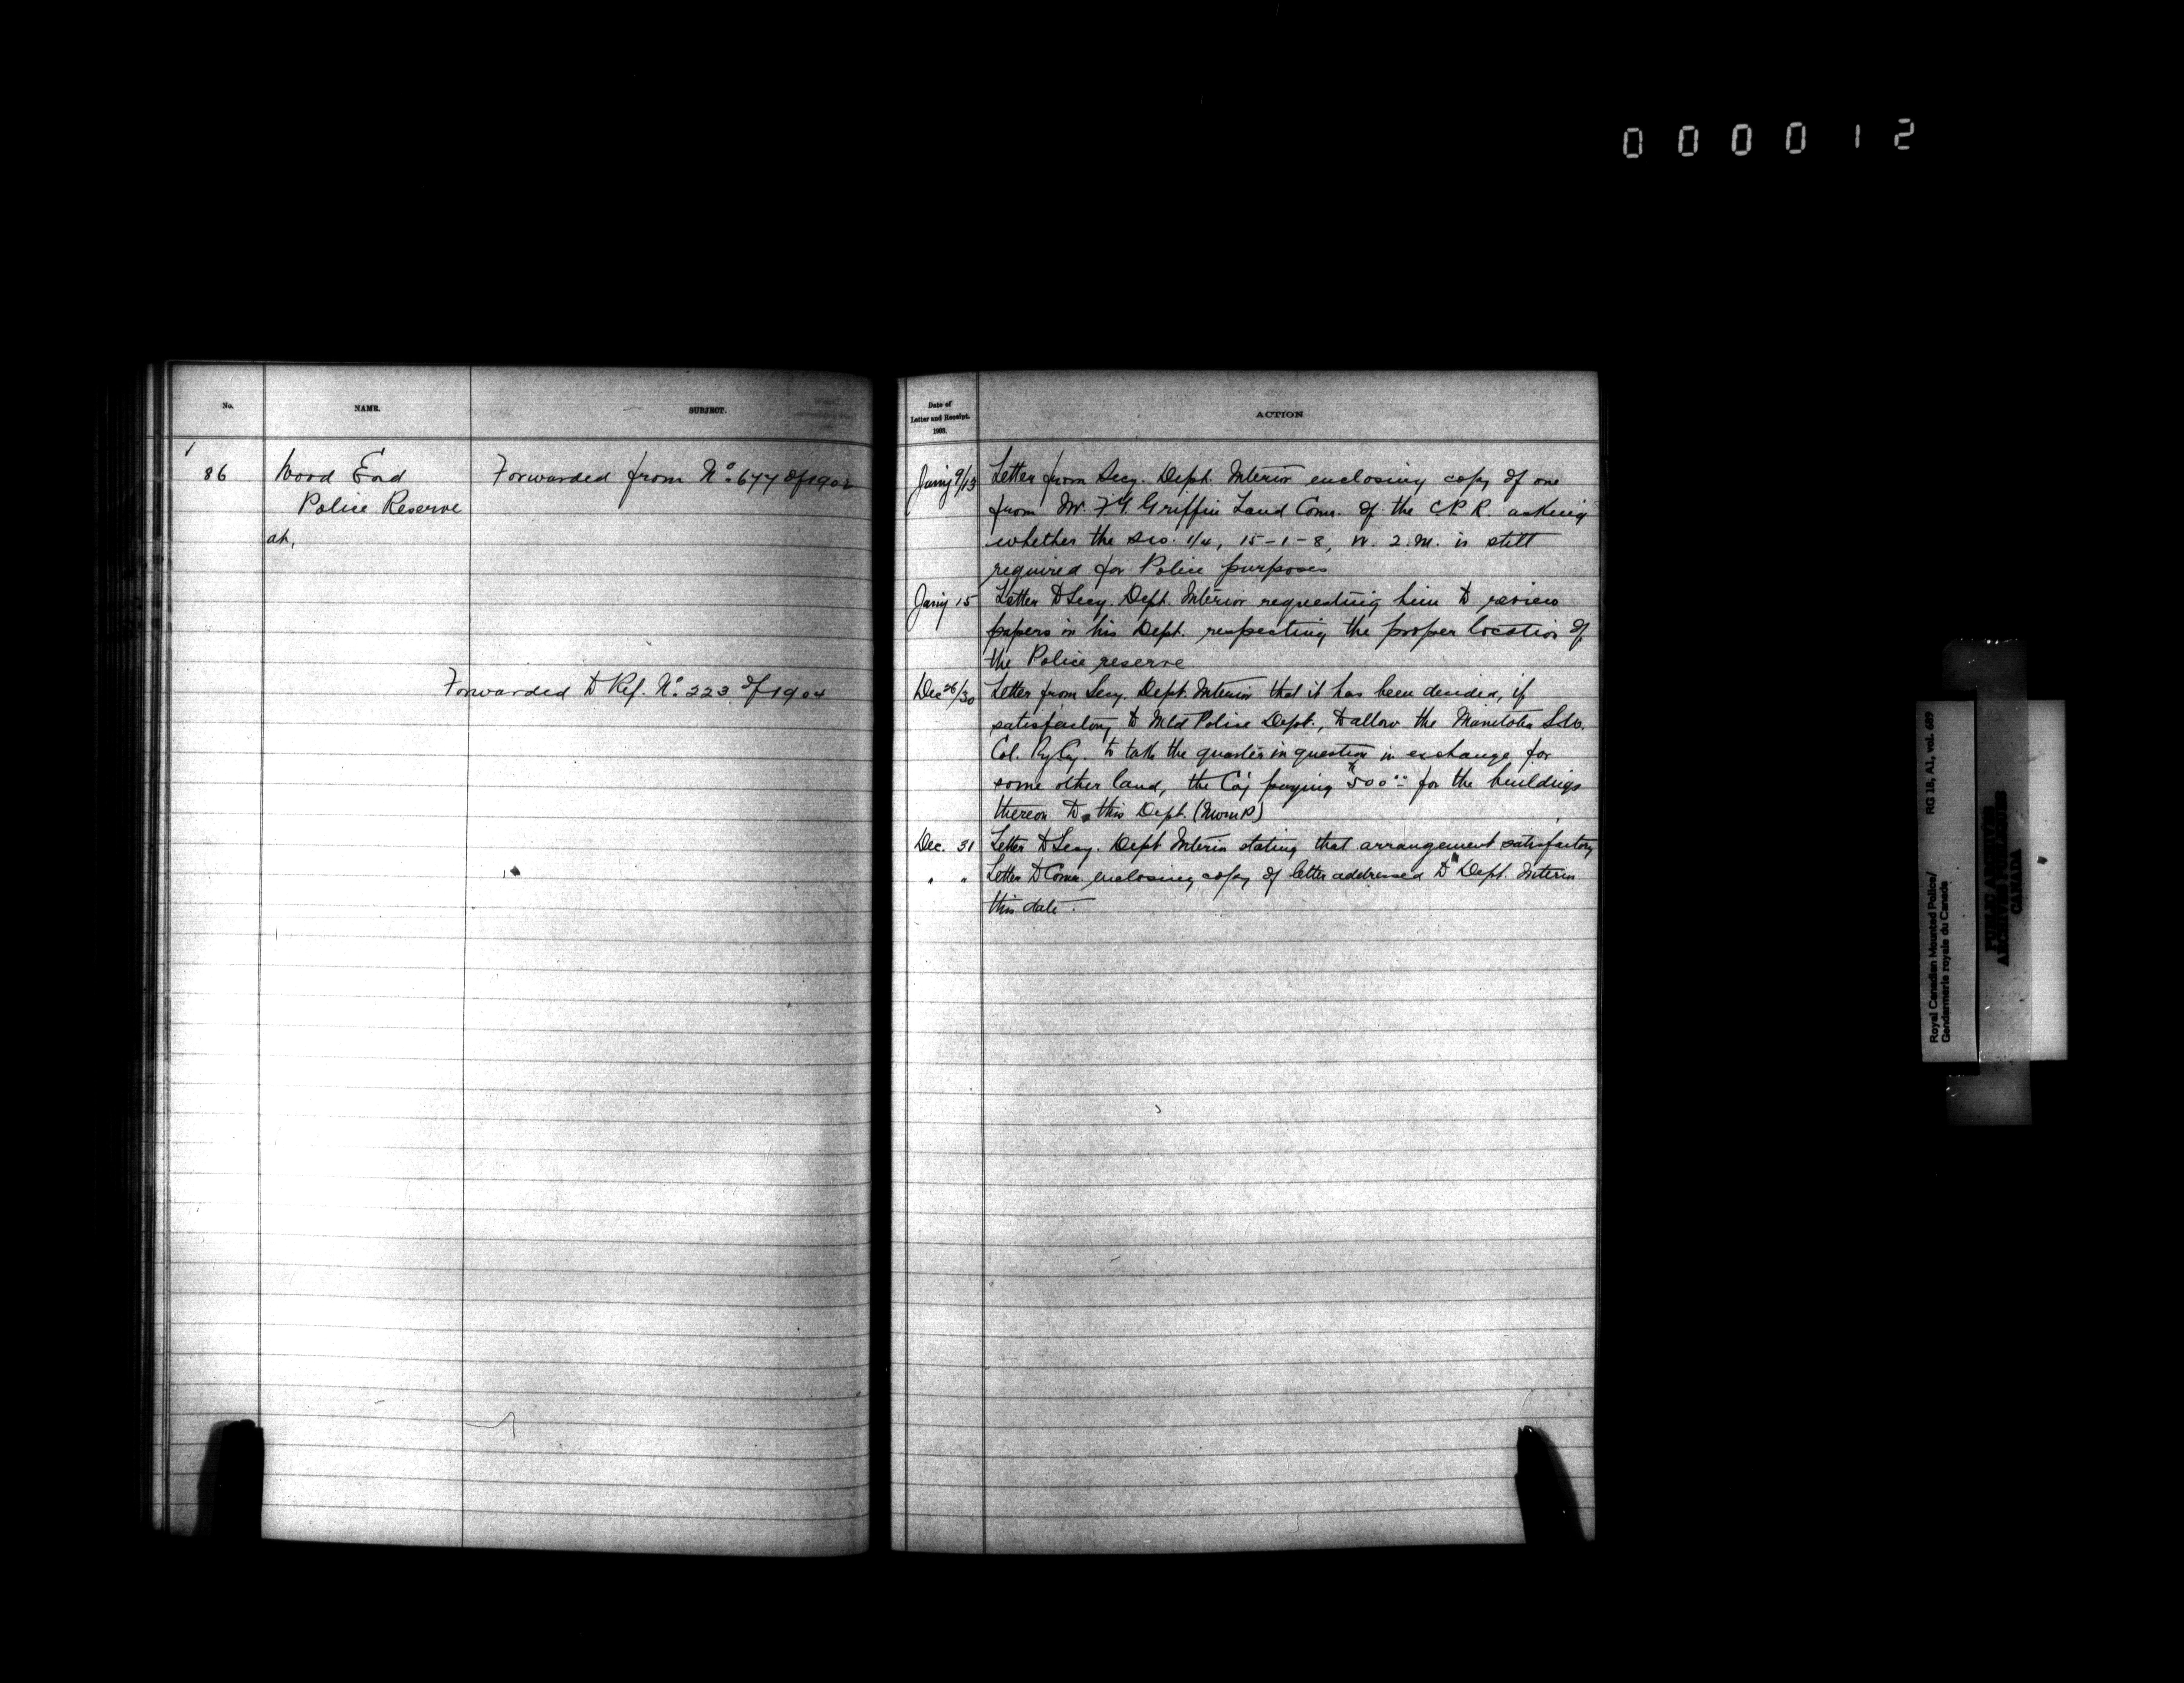 000012
No. NAME. SUBJECT.
1
86 Wood End Forwarded from No. 677 of 1902
Police Reserve
at,
Forwarded to Ref. No. 223 of 1904
Date of
Letter and Receipt.
1903.
ACTION
Jany 9/13 Letter from Secy. Dept. Interior enclosing copy of one
from Mr. F.T. Griffin Land Comr. of the C.P.R. asking
whether the s.w. 1/4, 15-1-8, W. 2. M. is still
required for Police purposes
Jany 15 Letter to Secy. Dept. Interior requesting him to review
papers in his Dept. respecting the proper location of
the Police reserve
Dec 26/30 Letter from Secy. Dept. Interior that it has been decided, if
satisfactory to Mtd Police Dept., to allow the Manitoba S.W.
Col. Ry Cy. to take the quarter in question in exchange for
some other land, the Coy paying $500.00 for the buildings
thereon to this Dept. (NWMP)
Dec. 31 Letter to Secy. Dept Interior stating that arrangement satisfactory
" " Letter to Comr. enclosing copy of letter addressed to Dept. Interior
this date.
Royal Canadian Mounted Police/ RG 18, A1, vol. 689
Gendarmerie royale du Canada
PUBLIC ARCHIVES
ARCHIVES PUBLIQUES
CANADA